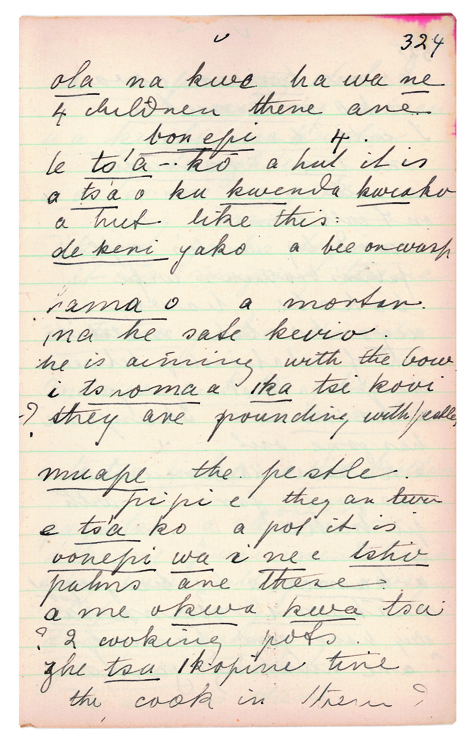 324
ola na kwe ha wa ne
4 children there are
bonepi 4.
le ts'a -- ko a hut it is
a tsa o ku kwenda kwiako
a hut like this:
de keni yako a bee or wasp
rama o a mortar.
ina he sate kevio
he is aiming with the bow
i tsroma a ika tsi kovi
-? they are pounding with/pestle
muape the pestle.
pipi e they are two
e tsa ko a pot it is
oonepi wa i ne e tshiv
palms are there -
a me okwa kwa tsa
? 2 cooking pots.
ghe tsa ikopine tine
the, cook in them ?